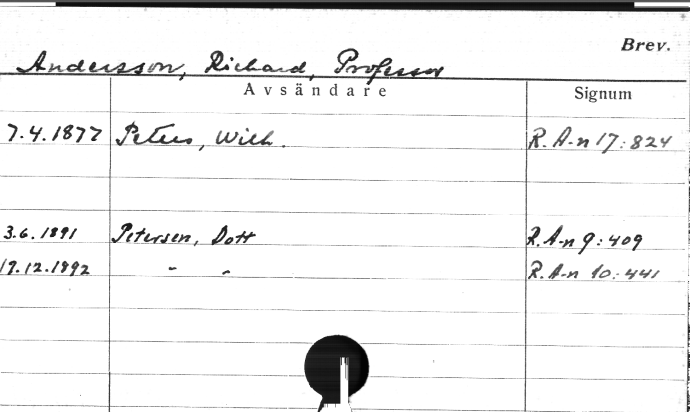 Brev.
Andersson, Richard, Professor
Avsändare Signum
7.4.1877 Peters, Wilh. R. A-n 17:824
3.6.1891 Petersen, Dott R. A-n 9:409
19.12.1892 " " R. A-n 10:441